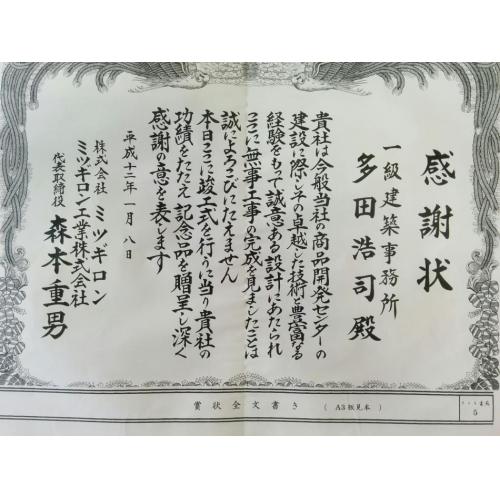 感謝状
一級建築事務所
多田浩司殿
貴社は今般当社の商品開発センターの
建設に際しその卓越した技術と豊富なる
経験をもって誠意ある設計にあたられ
ここに無事工事の完成を見ましたことは
誠によろこびにたえません
本日ここに竣工式を行うに当り貴社の
功績をたたえ記念品を贈呈し深く
感謝の意を表します
平成十二年一月八日
株式会社ミツギロン
ミツギロン工業株式会社
代表取締役 森本重男
賞状全文書き (A3板見本)
5